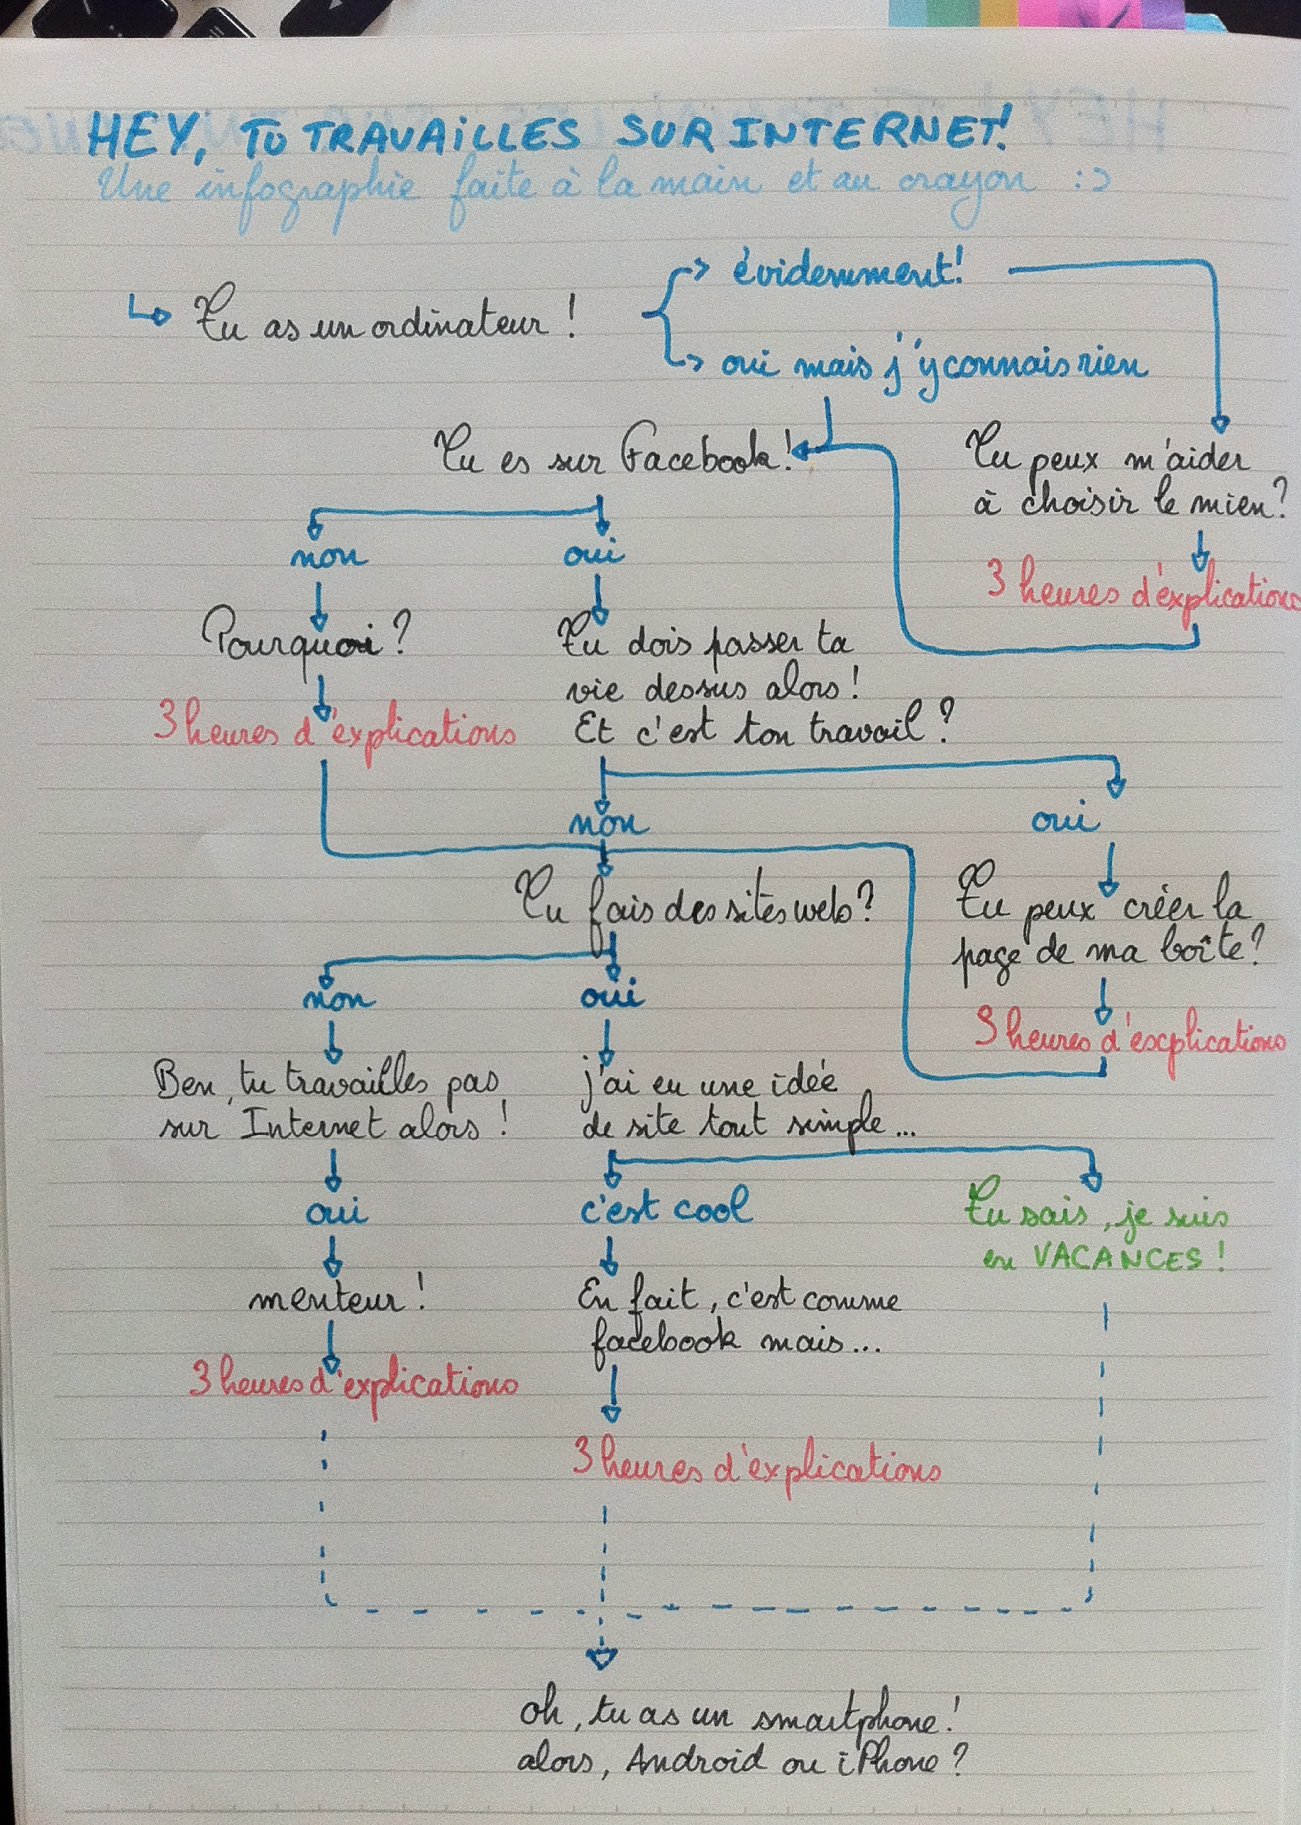 HEY, TU TRAVAILLES SUR INTERNET!
Une infographie faite à la main et au crayon :>
évidemment!
Tu as un ordinateur !
oui mais j'y connais rien
Tu es sur Facebook!
Tu peux m'aider
à choisir le mien?
non
oui
3 heures d'explications
Pourquoi?
Tu dois passer ta
vie dessus alors!
3 heures d'explications
Et c'est ton travail?
non
oui
Tu fais des sites web?
Tu peux créer la
page de ma boîte?
non
oui
3 heures d'explications
Ben, tu travailles pas
sur Internet alors!
j'ai eu une idée
de site tout simple...
oui
c'est cool
Tu sais, je suis
en VACANCES!
menteur!
En fait, c'est comme
facebook mais...
3 heures d'explications
3 heures d'explications
oh, tu as un smartphone!
alors, Android ou iPhone?